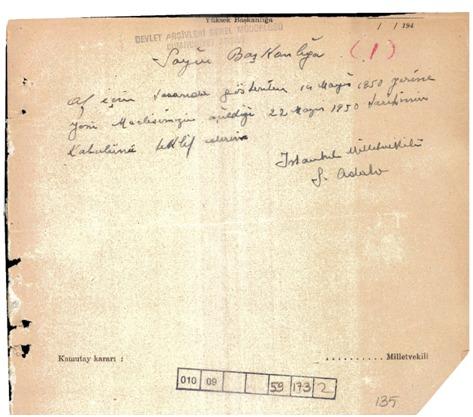 Yüksek Başkanlığa
/ / 194
DEVLET ARŞİVLERİ GENEL MÜDÜRLÜĞÜ
Sayın Başkanlığa (1)
Af için tasarıda gösterilen 14 Mayıs 1950 yerine
yeni Meclisimizin açıldığı 22 Mayıs 1950 tarihinin
kabulünü teklif ederim
İstanbul Milletvekili
S. Adalı
Kamutay kararı :
Milletvekili
010 09 59 173 2
135